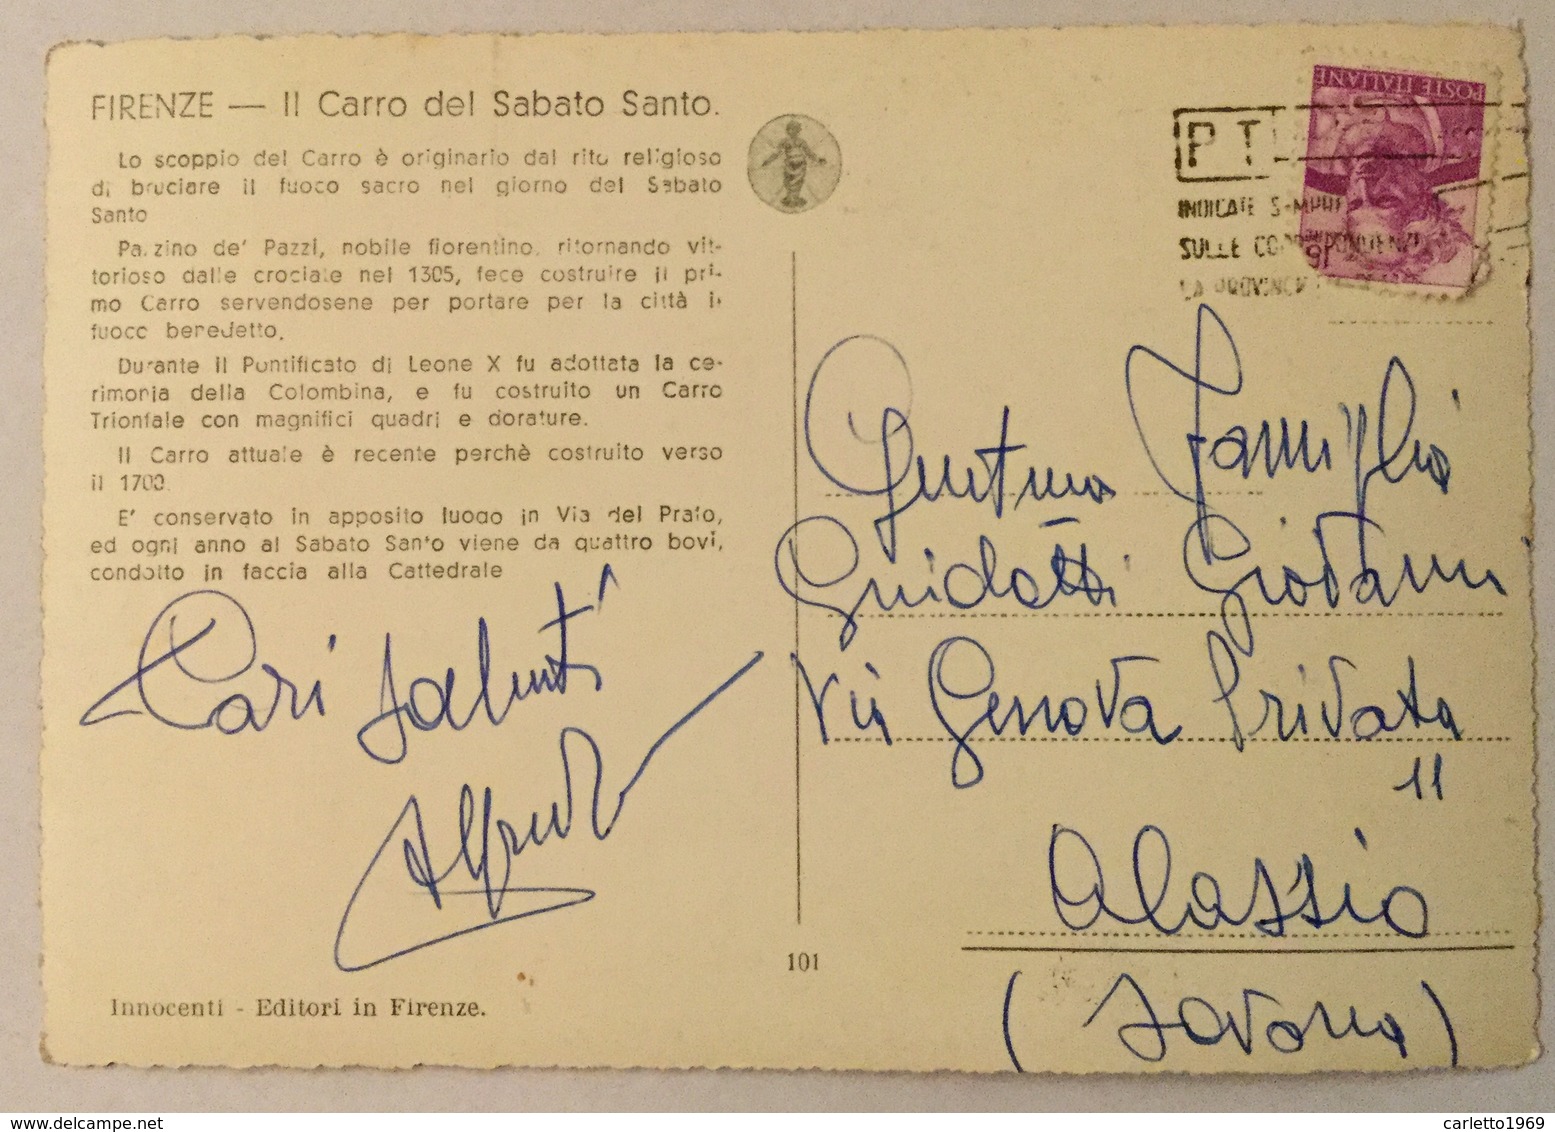 FIRENZE — Il Carro del Sabato Santo.
Lo scoppio del Carro è originario dal rito religioso
di bruciare il fuoco sacro nel giorno del Sabato
Santo
Pazzino de' Pazzi, nobile fiorentino, ritornando vit-
torioso dalle crociate nel 1305, fece costruire il pri-
mo Carro servendosene per portare per la città il
fuoco benedetto.
Durante il Pontificato di Leone X fu adottata la ce-
rimonia della Colombina, e fu costruito un Carro
Trionfale con magnifici quadri e dorature.
Il Carro attuale è recente perchè costruito verso
il 1700.
E' conservato in apposito luogo in Via del Prato,
ed ogni anno al Sabato Santo viene da quattro bovi,
condotto in faccia alla Cattedrale
Cari saluti
Alfredo
Innocenti - Editori in Firenze.
101
POSTE ITALIANE
P T
INDICATE SEMPRE
SULLE CORRISPONDENZE
LA PROVINCIA
Gent.ma Famiglia
Guidotti Giovanni
Via Genova Privata
11
Alassio
(Savona)
www.delcampe.net
carletto1969